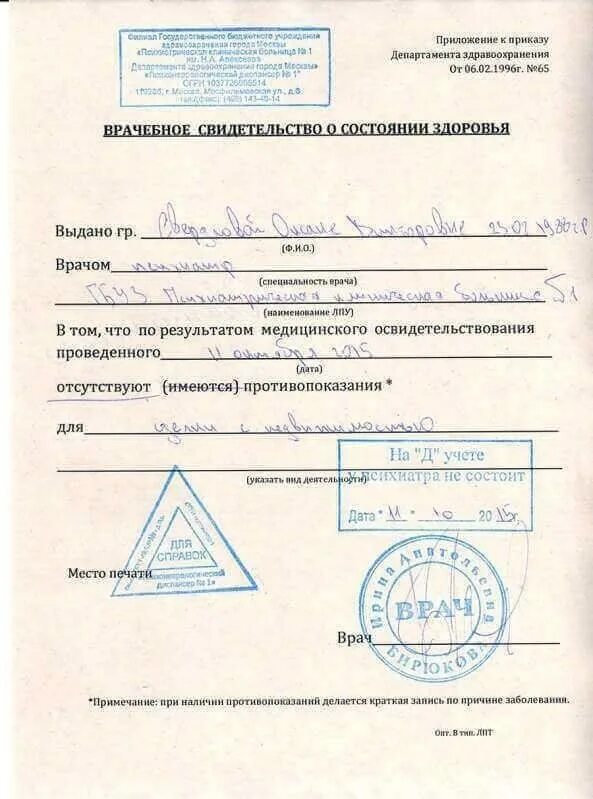 Филиал Государственного бюджетного учреждения
здравоохранения города Москвы
"Психиатрическая клиническая больница № 1
им. Н.А. Алексеева
Департамента здравоохранения города Москвы"
"Психоневрологический диспансер № 1"
г. Москва,
Приложение к приказу
Департамента здравоохранения
От 06.02.1996г. №65
ВРАЧЕБНОЕ СВИДЕТЕЛЬСТВО О СОСТОЯНИИ ЗДОРОВЬЯ
Выдано гр. Свердловой Оксане Викторовне
(Ф.И.О.)
Врачом психиатр
(специальность врача)
ГБУЗ Психиатрическая клиническая больница №1
(наименование ЛПУ)
В том, что по результатом медицинского освидетельствования
проведенного 11 октября 2015
(дата)
отсутствуют (имеются) противопоказания *
для сделки с недвижимостью
(указать вид деятельности)
На "Д" учете
у психиатра не состоит
Дата "11" 10 2015г.
ДЛЯ
СПРАВОК
Психоневрологический
диспансер № 1
Место печати
Ирина Анатольевна
ВРАЧ
БИРЮКОВА
Врач
*Примечание: при наличии противопоказаний делается краткая запись по причине заболевания.
Опт. В тип. ЛПТ